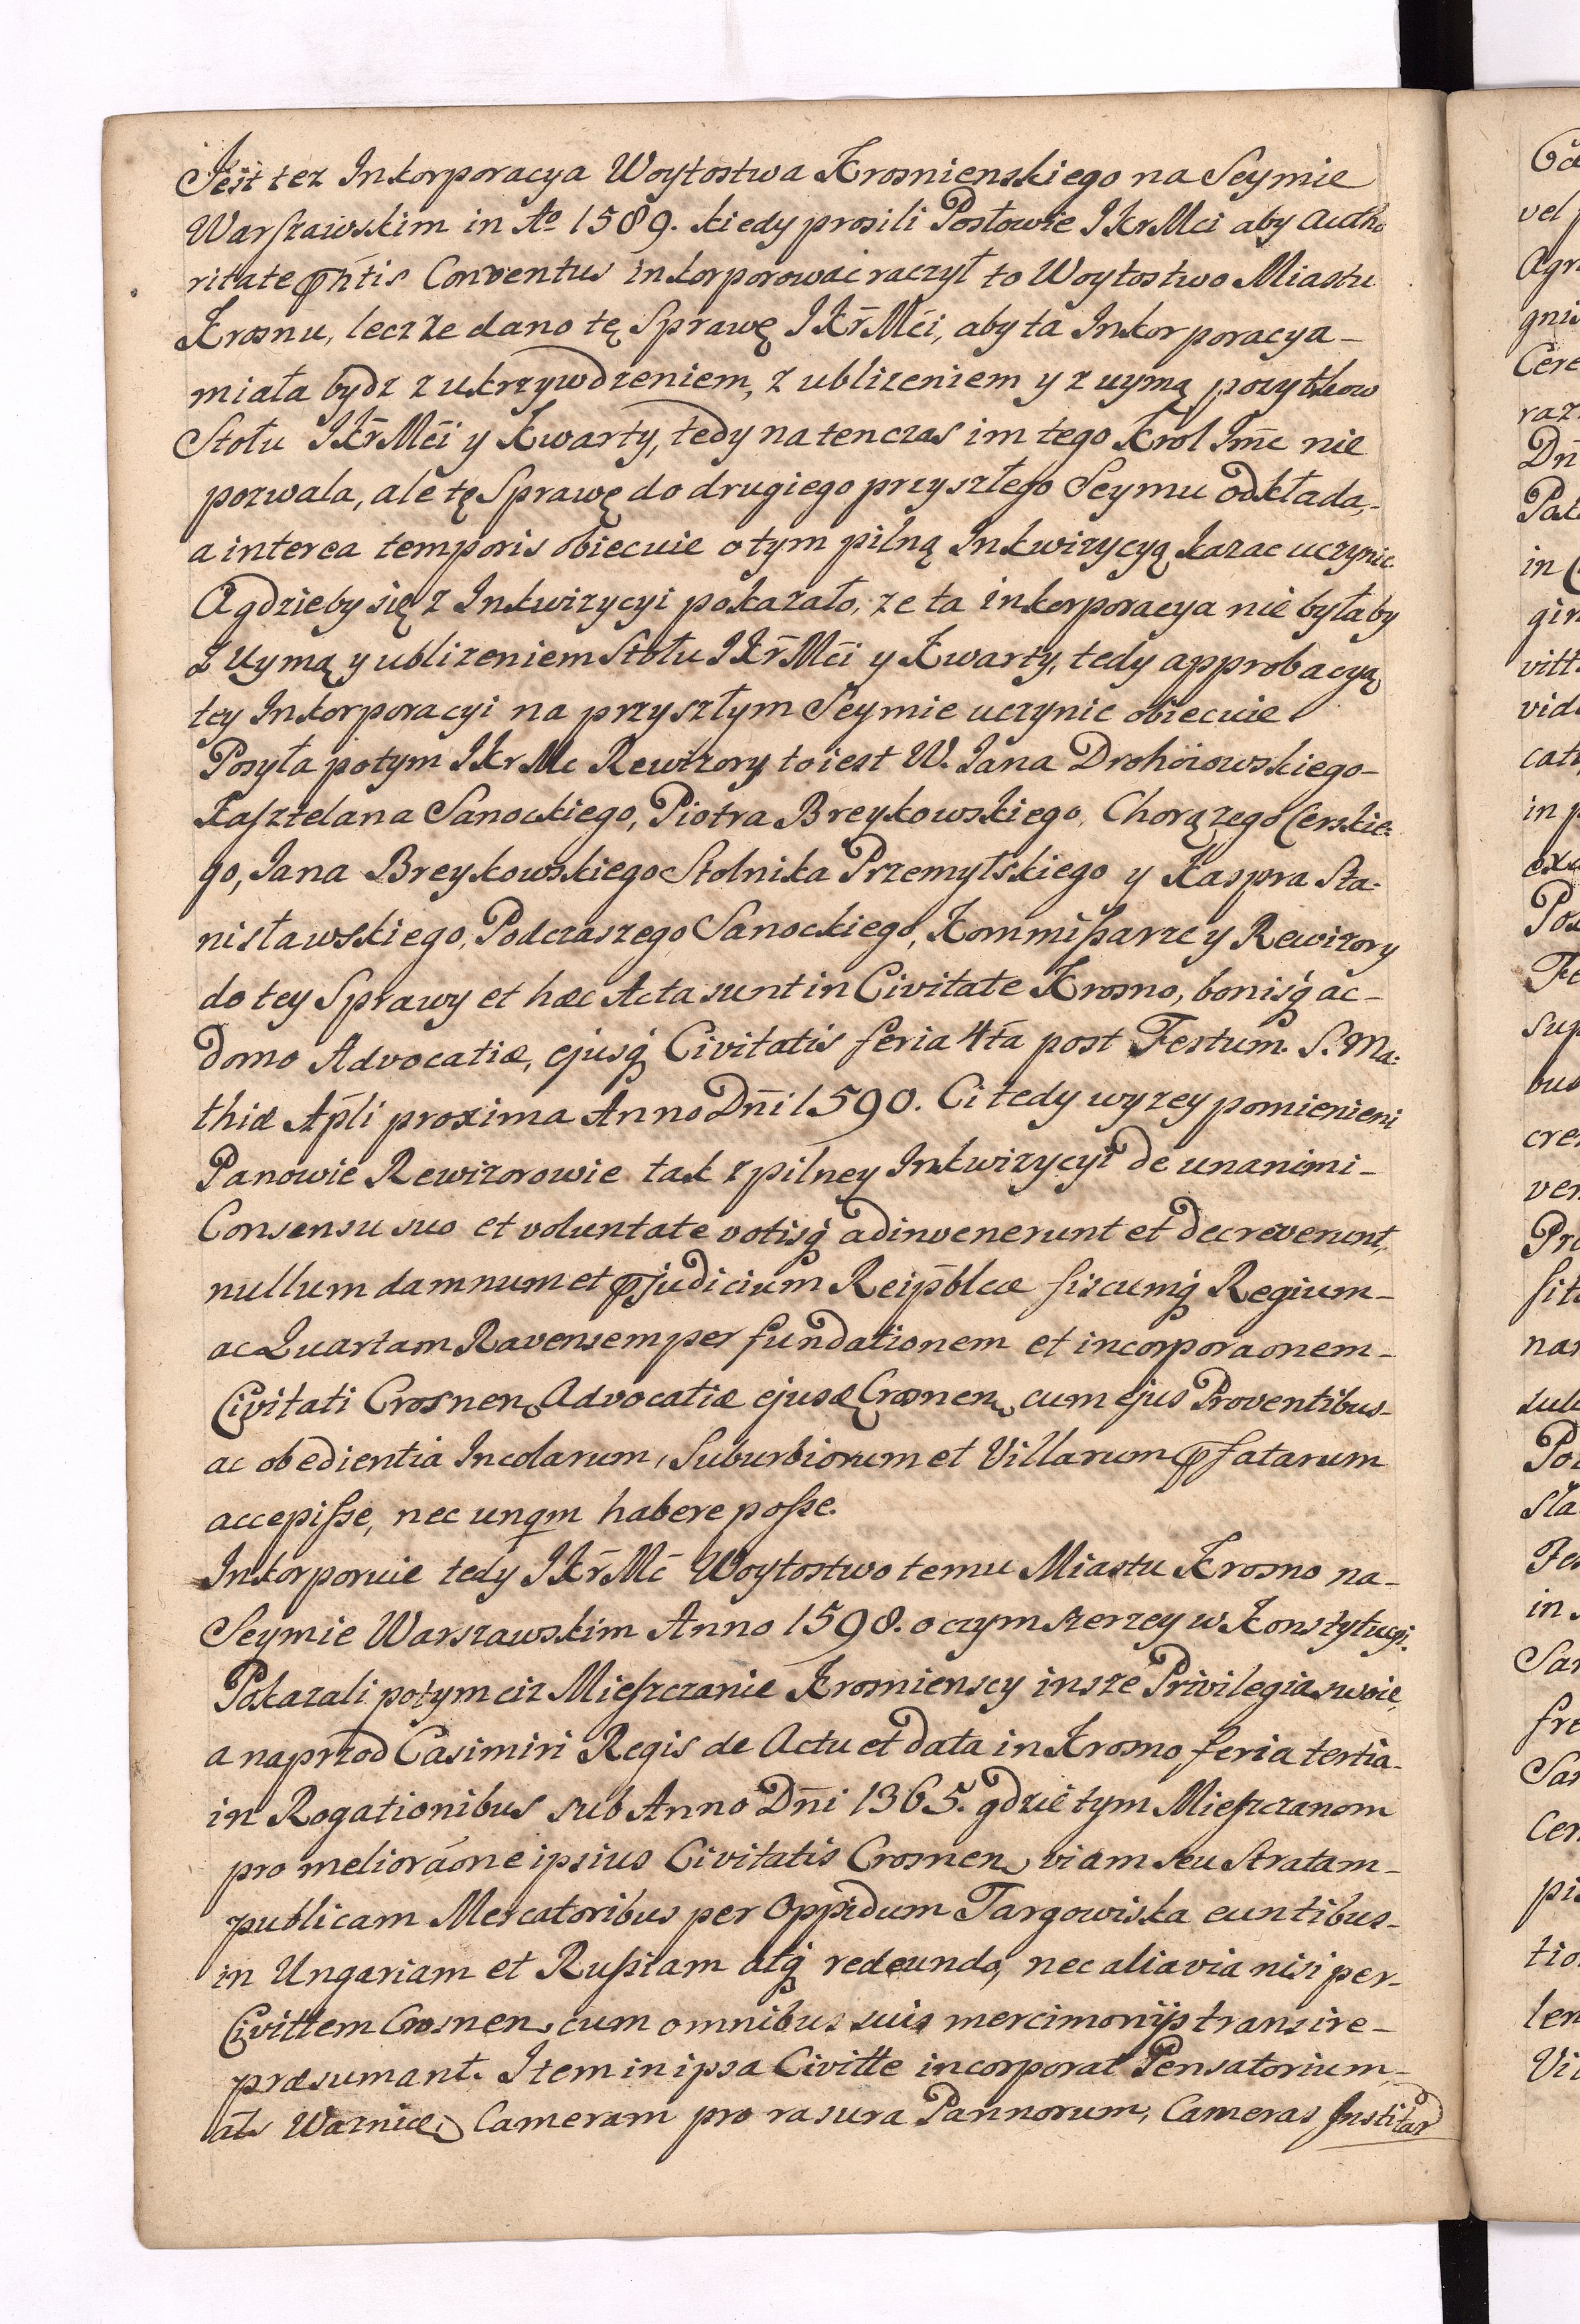 Jest tez Inkorporacya Woytostwa Krosnienskiego na Seymie
Warszawskim in Ao 1589. kiedy prosili Posłowie JKrMci aby autho
ritate pñtis Conventus inkorporować raczył to Woytostwo Miastu
Krosnu, lecz ze dano tę Sprawę JKr̃Mći, aby ta Inkorporacya –
miała bydz z ukrzywdzeniem, z ublizeniem y z uymą pozytkow
Stołu JKr̃Mći y Kwarty, tedy natenczas im tego Krol Jm̃c nie
pozwala, ale tę Sprawę do drugiego przyszłego Seymu odkłada,-
a interea temporis obiecuie o tym pilną Inkwizycyą kazac uczynic
A gdzieby się z Inkwizycyi pokazało, ze ta inkorporacya nie byłaby
z Uymą y ublizeniem Stołu JKr̃Mći y Kwarty, tedy approbacyą
tey Inkorporacyi na przyszłym Seymie uczynic obiecuie
Posyła potym JKrMc Rewizory to iest W. Jana Drohoiowskiego-
Kasztelana Sanockiego, Piotra Breykowskiego, Chorązego Cerskie-
go, Jana Breykowskiego Stolnika Przemyłskiego y Kaspra Sta-
nisławskiego, Podczaszego Sanockiego, Kommißarze y Rewizory
do tey Sprawy et hæc Acta sunt in Civitate Krosno, bonisq́ ac-
domo Advocatiæ, ejusq́ Civitatis feria 4ta post Festum S. Ma-
thiæ Ap̃li proxima Anno Dñi 1590. Ci tedy wyzey pomienieni
Panowie Rewizorowie tak z pilney Inkwizycyi de unanimi-
Consensu suo et voluntate votisq́ adinvenerunt et decreverunt,
nullum damnum et pjudicium Reip̃blcæ fiscumq́ Regium-
ac Quartam Ravensem per fundationem et incorporaonem-
Civitati Crosnen, Advocatiæ ejusdę Crosnen, cum ejus Proventibus-
ac obedientia Incolarum, Suburbiorum et Villarum pfatarum
accepiße, nec unqm habere poße.
Inkorporuie tedy JKr̃Mć Woytostwo temu Miastu Krosno na-
Seymie Warszawskim Anno 1598. o czym szerzey w Konstytucyi.
Pokazali potym ciz Mieszczanie Krosnienscy insze Privilegia swoie,
a naprzod Casimiri Regis de Actu et data in Krosno feria tertia-
in Rogationibus sub Anno Dñi 1365. gdzie tym Mieszczanom
pro melioraóne ipsius Civitatis Crosnen, viam seu Stratam-
publicam Mercatoribus per Oppidum Targowiska euntibus-
in Ungariam et Rußiam atq́ redeundo, nec alia via nisi per-
Civittem Crosnen, cum omnibus suis mercimonijs transire-
præsumant. Item in ipsa Civitte incorporat Pensatorium,-
als Waznice, Cameram pro rasura Pannorum, Cameras Institar